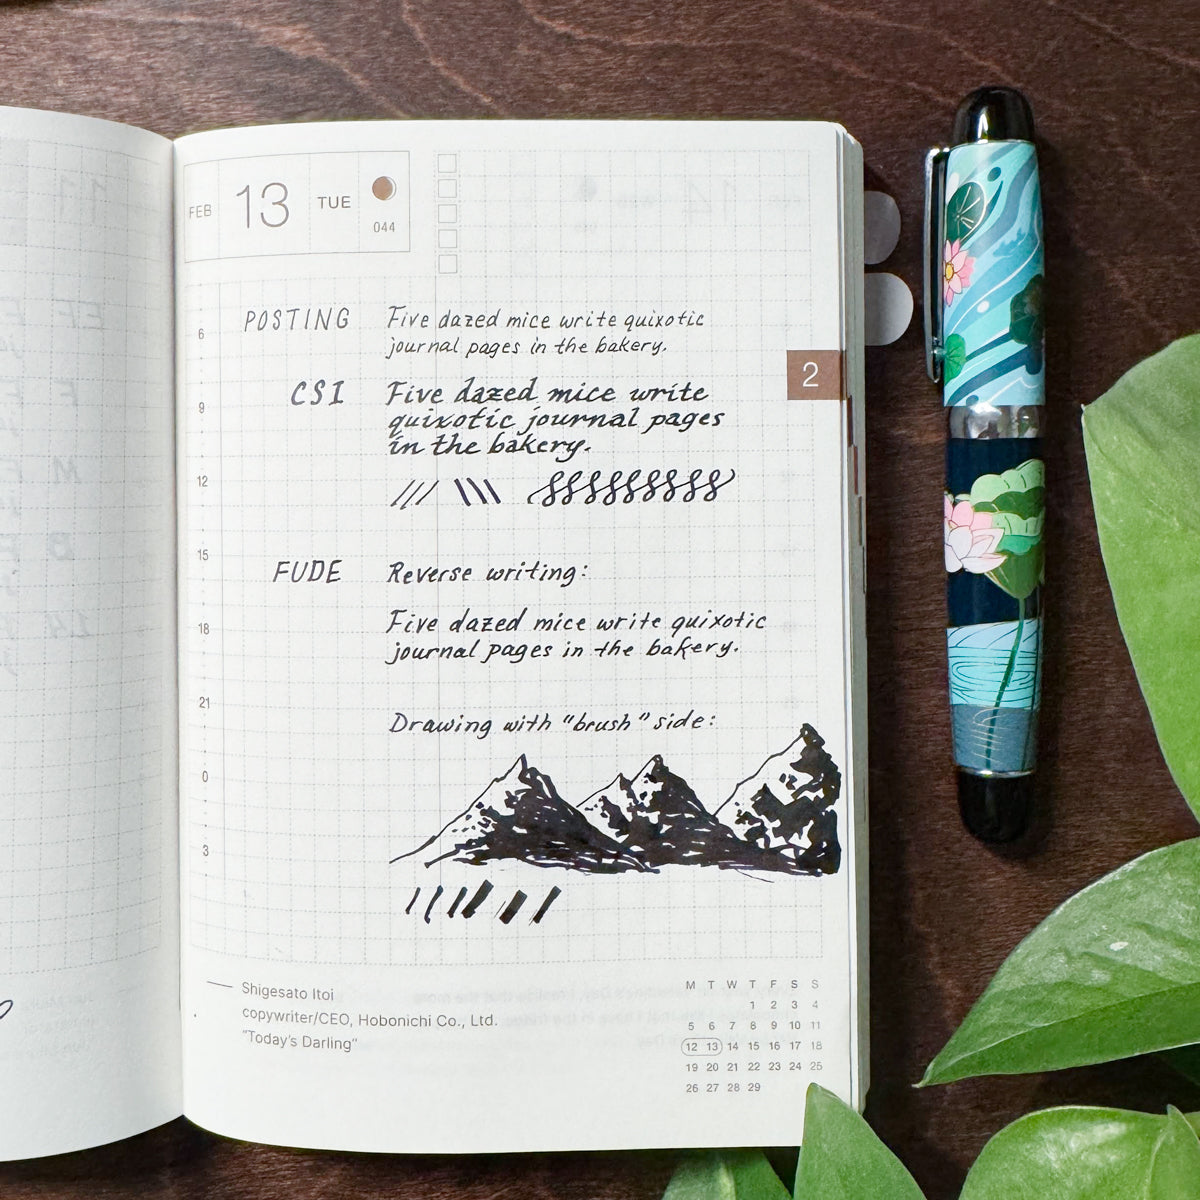 FEB 13 TUE
044
POSTING Five dazed mice write quixotic
journal pages in the bakery.
CSI Five dazed mice write
quixotic journal pages
in the bakery.
FUDE Reverse writing:
Five dazed mice write quixotic
journal pages in the bakery.
Drawing with "brush" side:
6
9
12
15
18
21
0
3
2
Shigesato Itoi
copywriter/CEO, Hobonichi Co., Ltd.
"Today's Darling"
M T W T F S S
1 2 3 4
5 6 7 8 9 10 11
12 13 14 15 16 17 18
19 20 21 22 23 24 25
26 27 28 29